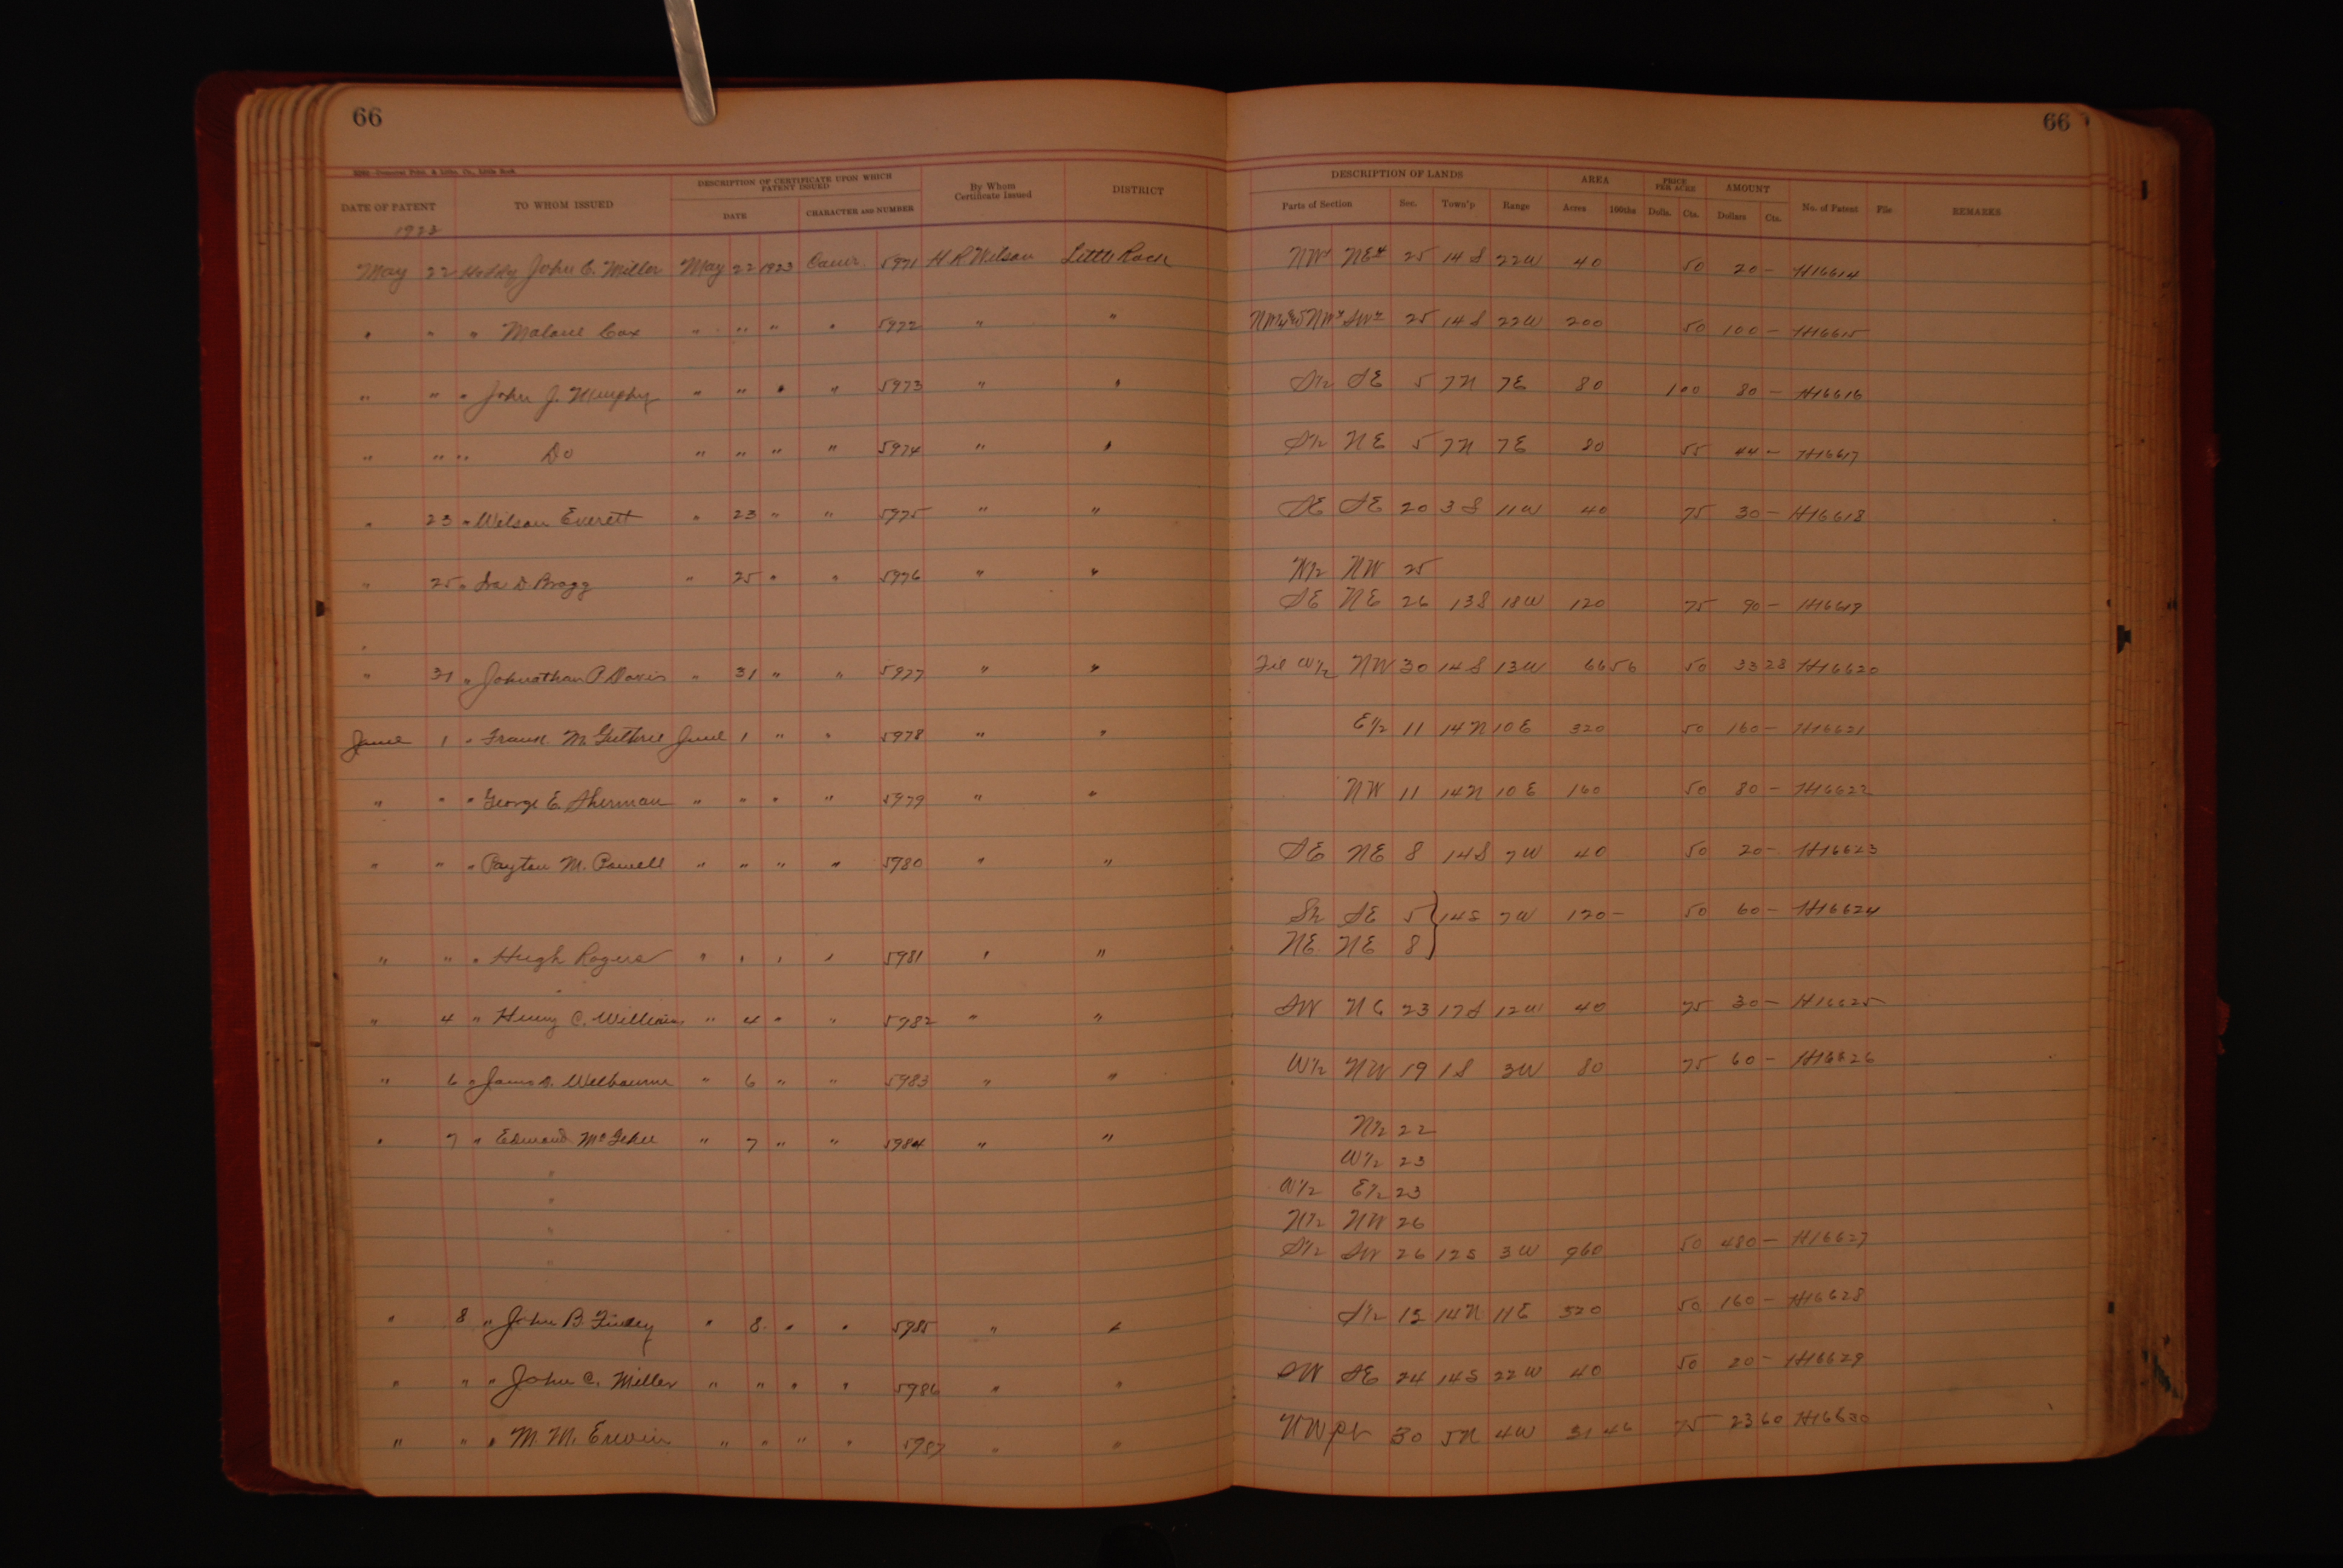 66
66
DATE OF PATENT TO WHOM ISSUED DESCRIPTION OF CERTIFICATE UPON WHICH PATENT ISSUED By Whom Certificate Issued DISTRICT DESCRIPTION OF LANDS AREA PRICE PER ACRE AMOUNT No. of Patent File REMARKS
DATE CHARACTER AND NUMBER Parts of Section Sec. Town'p Range Acres 100ths Dolls. Cts. Dollars Cts.
1923
May 22 John C. Miller May 22 1923 5971 H R Wilson Little Rock NW NE 25 14 S 22W 40 50 20 - H16614
" " " Malone Cox " " " " 5972 " " 25 14 S 22W 200 50 100 - H16615
" " " John J. Murphy " " " " 5973 " " S½ SE 5 7N 7E 80 1 00 80 - H16616
" " " Do " " " " 5974 " " S½ NE 5 7N 7E 80 55 44 - H16617
" 23 " Wilson Everett " 23 " " 5975 " " SE SE 20 3 S 11W 40 75 30 - H16618
" 25 " Ira D. Bragg " 25 " " 5976 " " W½ NW 25
SE NE 26 13S 18W 120 75 90 - H16619
" 31 " Johnathan P Davis " 31 " " 5977 " " W½ NW 30 14 S 13W 66 56 50 33 28 H16620
June 1 " Frank. McGuthrie June 1 " " 5978 " " E½ 11 14N 10E 320 50 160 - H16621
" " " George E. Sherman " " " " 5979 " " NW 11 14N 10E 160 50 80 - H16622
" " " Payton M. Powell " " " " 5980 " " SE NE 8 14S 7W 40 50 20 - H16623
S½ SE 5 } 14S 7W 120 - 50 60 - H16624
" " " Hugh Rogers " " " " 5981 " " NE NE 8
" 4 " Henry C. Williams " 4 " " 5982 " " SW NE 23 17S 12W 40 75 30 - H16625
" 6 " James D. Welbourne " 6 " " 5983 " " W½ NW 19 1S 3W 80 75 60 - H16626
" 7 " Edmond McGehee " 7 " " 5984 " " N½ 22
" W½ 23
" W½ E½ 23
" N½ NW 26
" S½ SW 26 12S 3W 960 50 480 - H16627
" 8 " John B. " 8 " " 5985 " " S½ 15 14N 11E 320 50 160 - H16628
" " " John C. Miller " " " " 5986 " " SW SE 24 14S 22W 40 50 20 - H16629
" " " M. M. Erwin " " " " 5987 " " NW pt 30 5N 4W 31 46 75 23 60 H16630